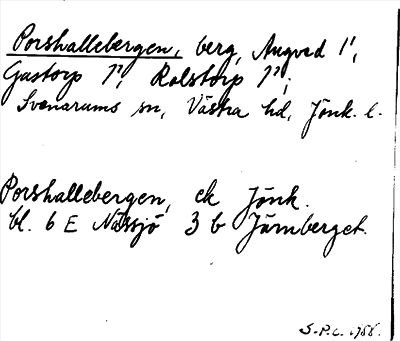 Porshallebergen, berg, Angred 1¹,
Gastorp 1², Rolstorp 1²;
Svenarums sn, Västra hd, Jönk. l.
Porshallebergen, ek Jönk.
bl. 6 E Nässjö 3 b Järnberget.
S.P.C. 1966.